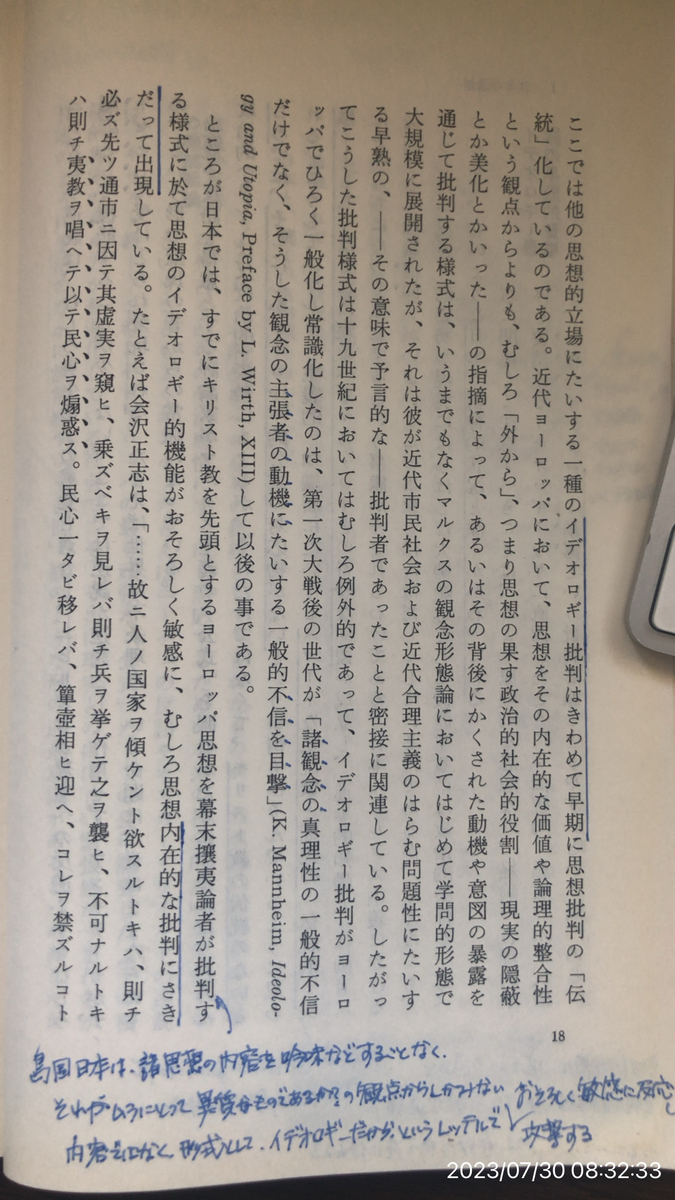 ここでは他の思想的立場にたいする一種のイデオロギー批判はきわめて早期に思想批判の「伝
統」化しているのである。近代ヨーロッパにおいて、思想をその内在的な価値や論理的整合性
という観点からよりも、むしろ「外から」、つまり思想の果す政治的社会的役割――現実の隠蔽
とか美化とかいった――の指摘によって、あるいはその背後にかくされた動機や意図の暴露を
通じて批判する様式は、いうまでもなくマルクスの観念形態論においてはじめて学問的形態で
大規模に展開されたが、それは彼が近代市民社会および近代合理主義のはらむ問題性にたいす
る早熟の、――その意味で予言的な――批判者であったことと密接に関連している。したがっ
てこうした批判様式は十九世紀においてはむしろ例外的であって、イデオロギー批判がヨーロ
ッパでひろく一般化し常識化したのは、第一次大戦後の世代が「諸観念の真理性の一般的不信
だけでなく、そうした観念の主張者の動機にたいする一般的不信を目撃」(K. Mannheim, Ideolo-
gy and Utopia, Preface by L. Wirth, XIII)して以後の事である。
ところが日本では、すでにキリスト教を先頭とするヨーロッパ思想を幕末攘夷論者が批判す
る様式に於て思想のイデオロギー的機能がおそろしく敏感に、むしろ思想内在的な批判にさき
だって出現している。たとえば会沢正志は、「……故ニ人ノ国家ヲ傾ケント欲スルトキハ、則チ
必ズ先ツ通市ニ因テ其虚実ヲ窺ヒ、乗ズベキヲ見レバ則チ兵ヲ挙ゲテ之ヲ襲ヒ、不可ナルトキ
ハ則チ夷教ヲ唱ヘテ以テ民心ヲ煽惑ス。民心一タビ移レバ、簞壺相ヒ迎ヘ、コレヲ禁ズルコト
18
島国日本は、諸思想の内容を吟味などすることなく、
それがムラにとって異質なものであるか?の観点からしかみない おそろしく敏感に反応し
内容ではなく形式として、イデオロギーだから、というレッテルで 攻撃する
2023/07/30 08:32:33